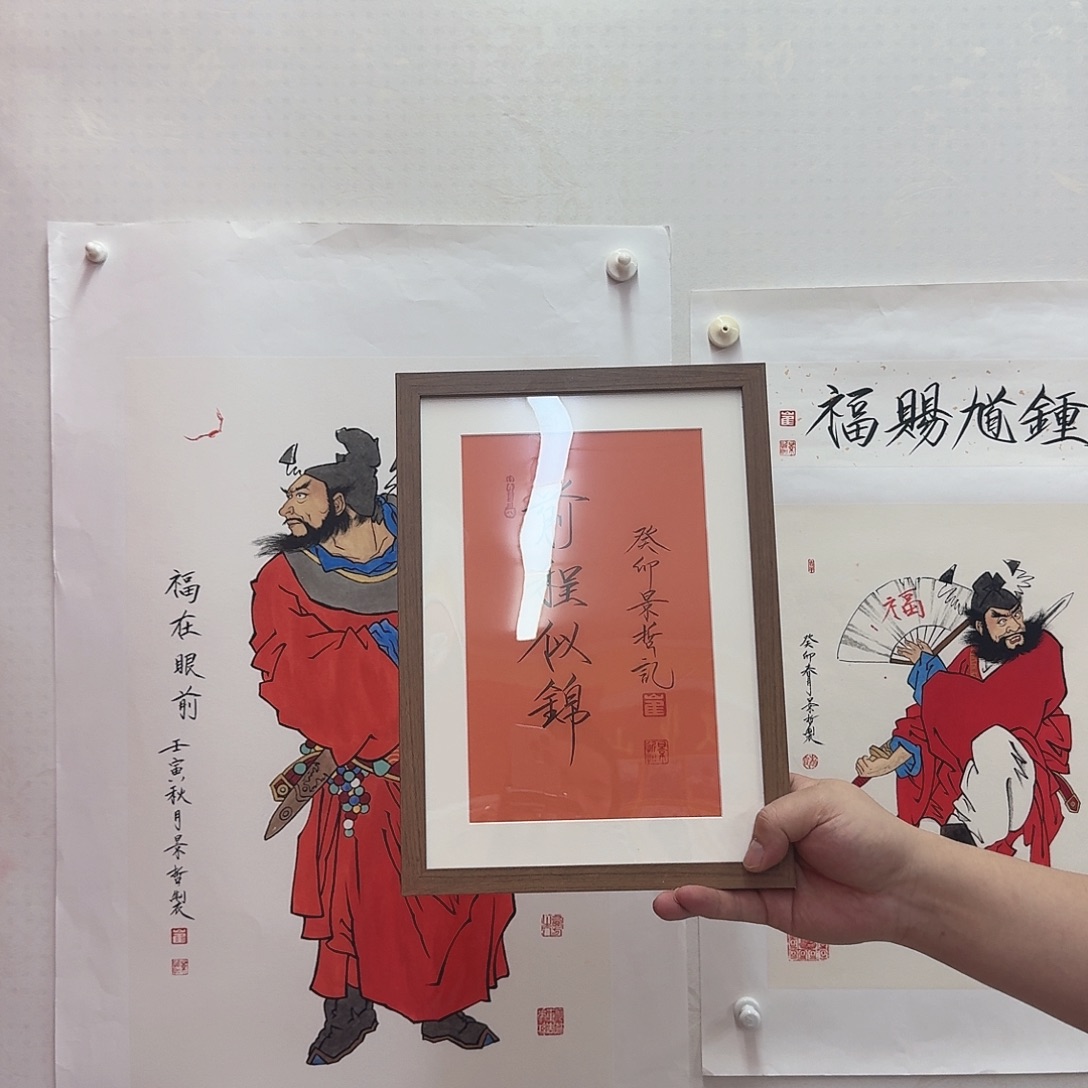 福在眼前
壬寅秋月景哲製
前程似錦
癸卯景哲記
福賜馗鍾
福
癸卯春月景哲製